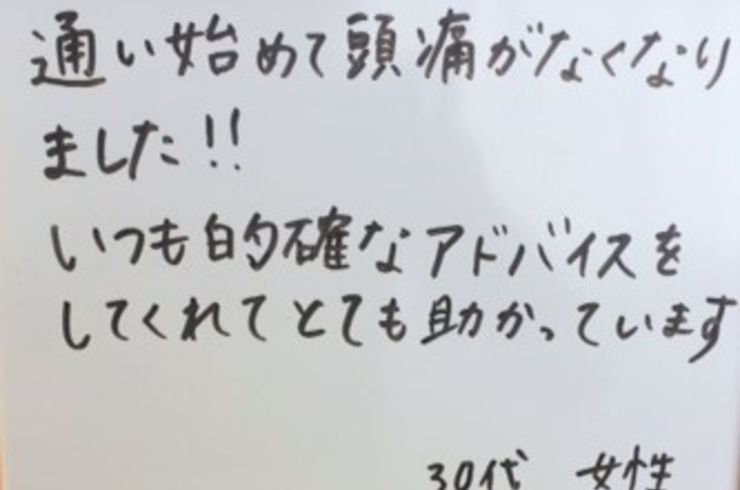 通い始めて頭痛がなくなり
ました!!
いつも的確なアドバイスを
してくれてとても助かっています
30代 女性